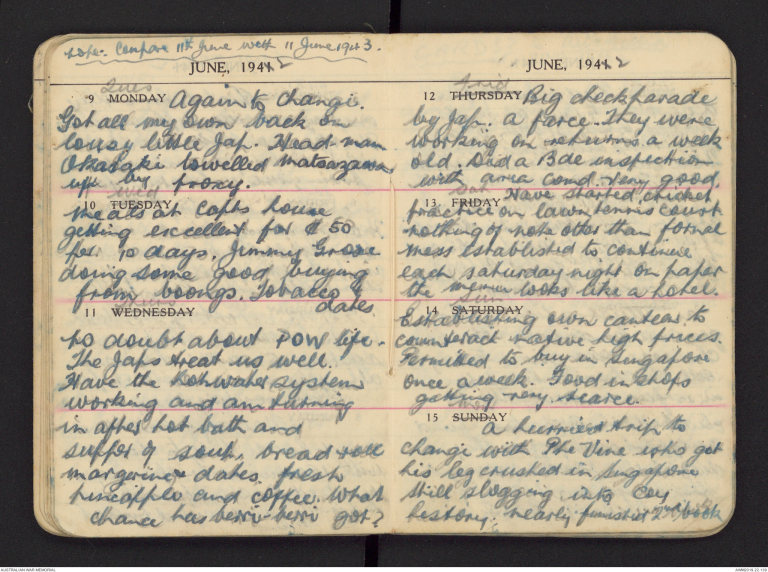 Note:- Compare 11th June with 11 June 1943.
JUNE, 1942
Tues
9 MONDAY Again to Changi.
Got all my own back on
lousy little Jap. Head man
Okasaki towelled Matsuzawa
up by proxy.
Wed
10 TUESDAY
Meals at Capts house
getting excellent for $50
per 10 days. Jimmy Grose
doing some good buying
from boongs. Tobacco &
dates
Thurs
11 WEDNESDAY
No doubt about POW life.
The Japs treat us well.
Have the hot water system
working and am turning
in after hot bath and
supper of soup, bread roll
margerine & dates. fresh
pineapple and coffee. What
chance has berri-berri got?
JUNE, 1942
Frid
12 THURSDAY Big check parade
by Jap. a farce. They were
working on returns a week
old. Did a Bde inspection
with area comd. Very good.
Sat
13 FRIDAY Have started cricket
practice on lawn tennis court
nothing of note other than formal
mess established to continue
each saturday night on paper
the menu looks like a hotel.
Sun
14 SATURDAY
Establishing own canteen to
counteract native high prices.
Permitted to buy in Singapore
once a week. Food in shops
getting very scarce.
15 SUNDAY
A hurried trip to
Changi with Phe Vine who got
his leg crushed in Singapore
Still slogging into Coy
history. nearly finished 2nd book